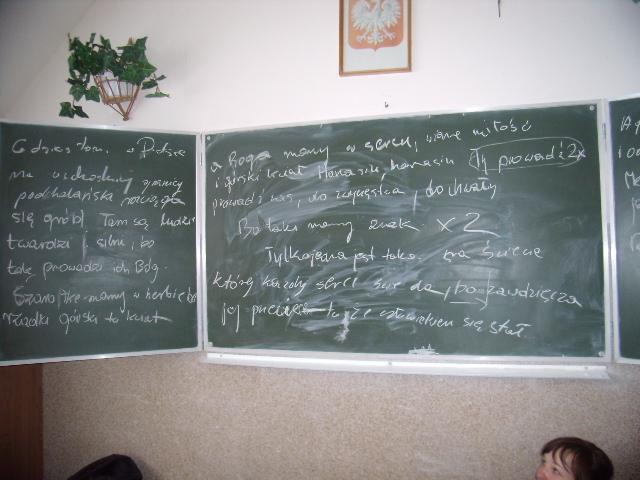 Gdzieś tam w Polsce
na wschodniej granicy
podhalańska rozciąga
się grób! Tam są ludzie
twardzi i silni, bo
tak prowadzi ich Bóg.
Szarotkę mamy w herbie bo
rzadki górski to kwiat
a Boga mamy w sercu, wiarę miłość
i górski kwiat Hanasiu, hanasiu Ty prowadź 2x
prowadź nas, do zwycięstwa, do chwały
Bo taki mamy znak x2
Tylko jedna jest taka na świecie
której każdy serce swe da, bo zawdzięcza
jej przecież to że człowiekiem się stał.